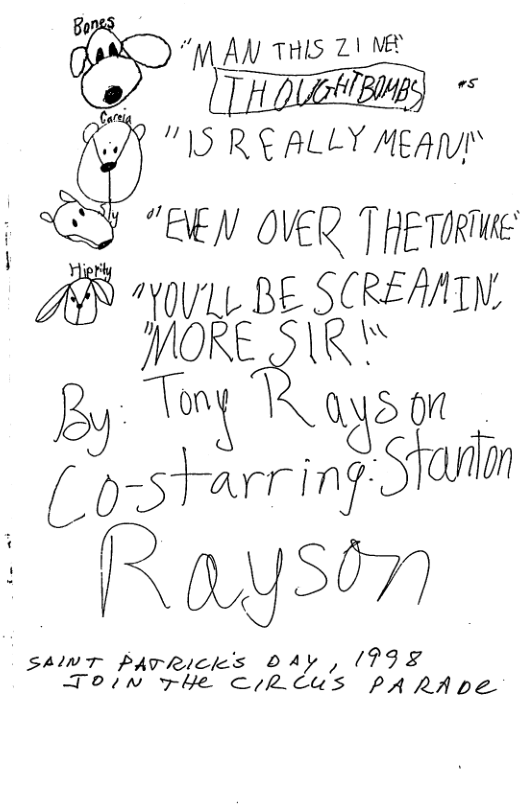 Bones
"MAN THIS ZINE!"
THOUGHTBOMBS #5
Garcia
"IS REALLY MEAN!"
Sly
"EVEN OVER THE TORTURE"
"YOU'LL BE SCREAMIN',
"MORE SIR!"
By: Tony Rayson
Co-starring: Stanton
Rayson
SAINT PATRICK'S DAY, 1998
JOIN THE CIRCUS PARADE